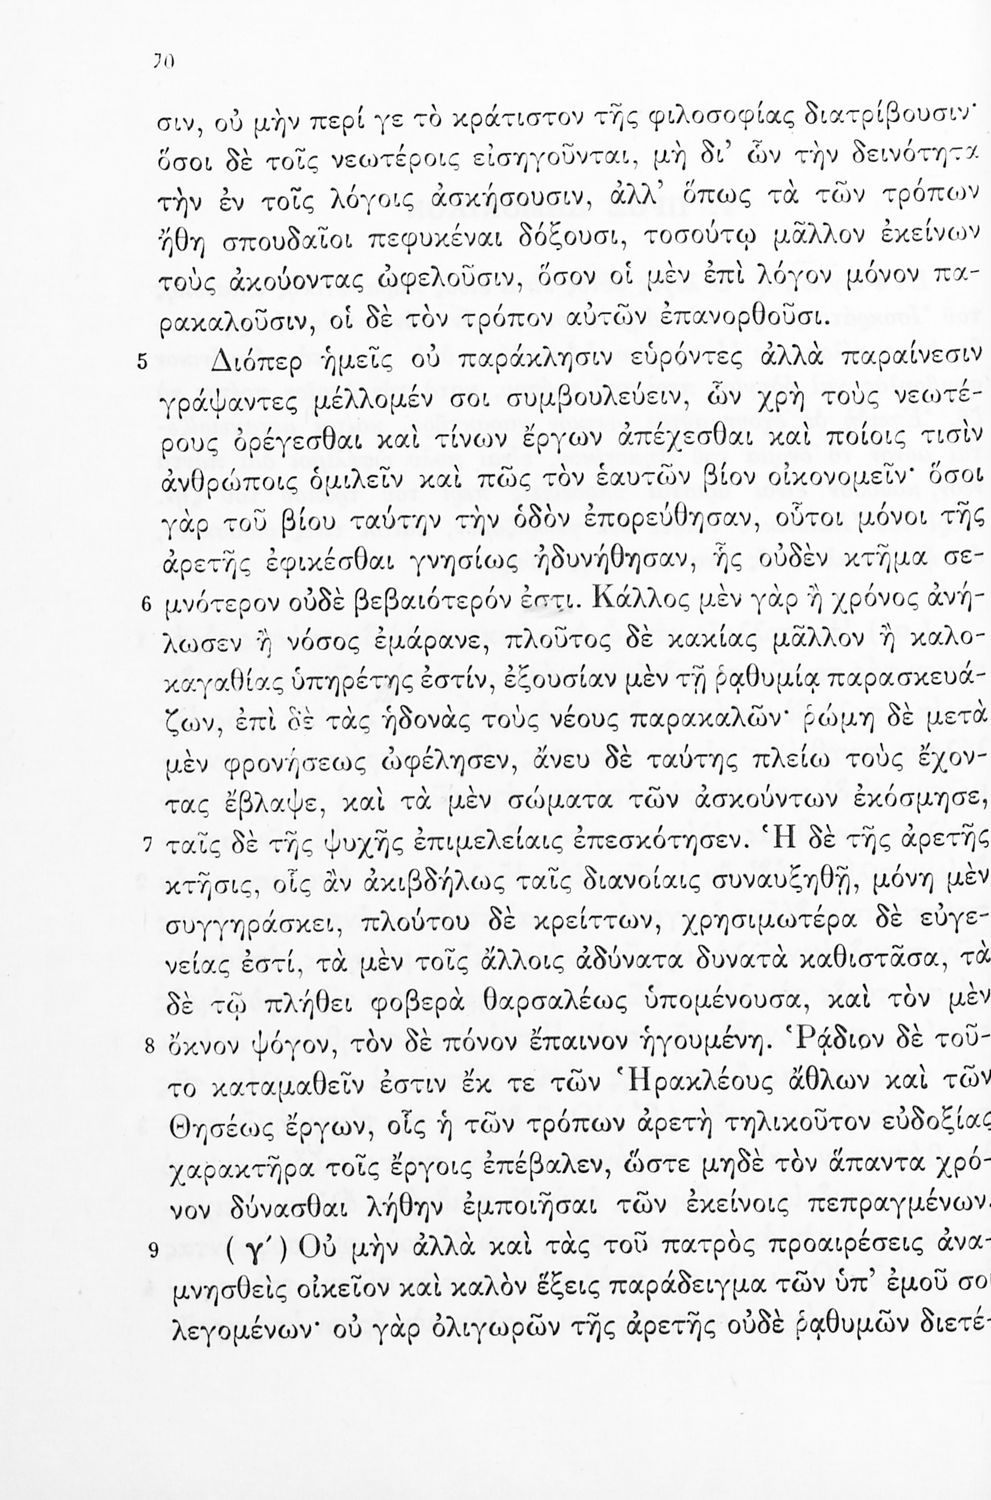 70
σιν, οὐ μὴν περί γε τὸ κράτιστον τῆς φιλοσοφίας διατρίβουσιν·
ὅσοι δὲ τοῖς νεωτέροις εἰσηγοῦνται, μὴ δι’ ὧν τὴν δεινότητα
τὴν ἐν τοῖς λόγοις ἀσκήσουσιν, ἀλλ’ ὅπως τὰ τῶν τρόπων
ἤθη σπουδαῖοι πεφυκέναι δόξουσι, τοσούτῳ μᾶλλον ἐκείνων
τοὺς ἀκούοντας ὠφελοῦσιν, ὅσον οἱ μὲν ἐπὶ λόγον μόνον πα-
ρακαλοῦσιν, οἱ δὲ τὸν τρόπον αὐτῶν ἐπανορθοῦσι.
5 Διόπερ ἡμεῖς οὐ παράκλησιν εὑρόντες ἀλλὰ παραίνεσιν
γράψαντες μέλλομέν σοι συμβουλεύειν, ὧν χρὴ τοὺς νεωτέ-
ρους ὀρέγεσθαι καὶ τίνων ἔργων ἀπέχεσθαι καὶ ποίοις τισὶν
ἀνθρώποις ὁμιλεῖν καὶ πῶς τὸν ἑαυτῶν βίον οἰκονομεῖν· ὅσοι
γὰρ τοῦ βίου ταύτην τὴν ὁδὸν ἐπορεύθησαν, οὗτοι μόνοι τῆς
ἀρετῆς ἐφικέσθαι γνησίως ἠδυνήθησαν, ἧς οὐδὲν κτῆμα σε-
6 μνότερον οὐδὲ βεβαιότερόν ἐστι. Κάλλος μὲν γὰρ ἢ χρόνος ἀνή-
λωσεν ἢ νόσος ἐμάρανε, πλοῦτος δὲ κακίας μᾶλλον ἢ καλο-
καγαθίας ὑπηρέτης ἐστίν, ἐξουσίαν μὲν τῇ ῥᾳθυμίᾳ παρασκευά-
ζων, ἐπὶ δὲ τὰς ἡδονὰς τοὺς νέους παρακαλῶν· ῥώμη δὲ μετὰ
μὲν φρονήσεως ὠφέλησεν, ἄνευ δὲ ταύτης πλείω τοὺς ἔχον-
τας ἔβλαψε, καὶ τὰ μὲν σώματα τῶν ἀσκούντων ἐκόσμησε,
7 ταῖς δὲ τῆς ψυχῆς ἐπιμελείαις ἐπεσκότησεν. Ἡ δὲ τῆς ἀρετῆς
κτῆσις, οἷς ἂν ἀκιβδήλως ταῖς διανοίαις συναυξηθῇ, μόνη μὲν
συγγηράσκει, πλούτου δὲ κρείττων, χρησιμωτέρα δὲ εὐγε-
νείας ἐστί, τὰ μὲν τοῖς ἄλλοις ἀδύνατα δυνατὰ καθιστᾶσα, τὰ
δὲ τῷ πλήθει φοβερὰ θαρσαλέως ὑπομένουσα, καὶ τὸν μὲν
8 ὄκνον ψόγον, τὸν δὲ πόνον ἔπαινον ἡγουμένη. Ῥᾴδιον δὲ τοῦ-
το καταμαθεῖν ἐστιν ἔκ τε τῶν Ἡρακλέους ἄθλων καὶ τῶν
Θησέως ἔργων, οἷς ἡ τῶν τρόπων ἀρετὴ τηλικοῦτον εὐδοξίας
χαρακτῆρα τοῖς ἔργοις ἐπέβαλεν, ὥστε μηδὲ τὸν ἅπαντα χρό-
νον δύνασθαι λήθην ἐμποιῆσαι τῶν ἐκείνοις πεπραγμένων.
9 (γ΄) Οὐ μὴν ἀλλὰ καὶ τὰς τοῦ πατρὸς προαιρέσεις ἀνα-
μνησθεὶς οἰκεῖον καὶ καλὸν ἕξεις παράδειγμα τῶν ὑπ’ ἐμοῦ σοι
λεγομένων· οὐ γὰρ ὀλιγωρῶν τῆς ἀρετῆς οὐδὲ ῥᾳθυμῶν διετέ-